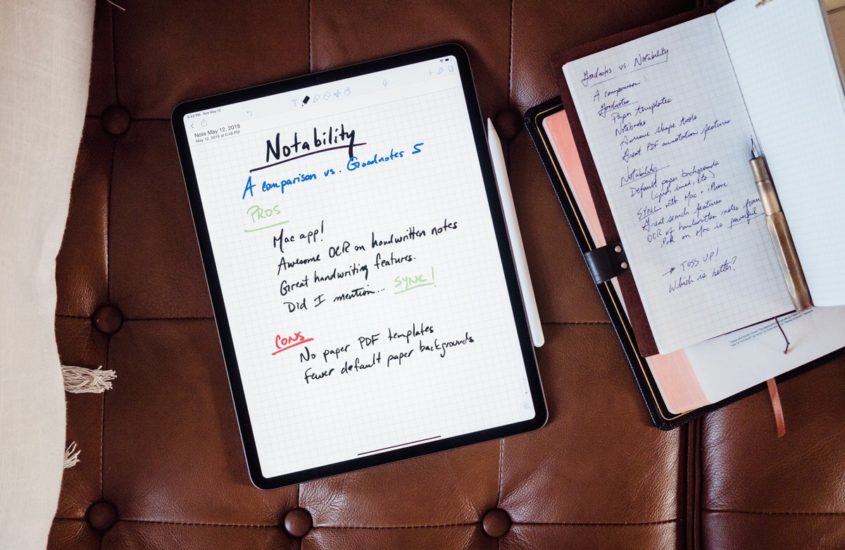 Note May 12, 2019
May 12, 2019 at 6:48 PM
Notability
A comparison vs. Goodnotes 5
PROS
Mac app!
Awesome OCR on handwritten notes
Great handwriting features.
Did I mention... SYNC!
CONS
No paper PDF templates
Fewer default paper backgrounds
Goodnotes vs. Notability
A comparison
Goodnotes
Paper templates
Notebooks
Awesome shape tools
Great PDF annotation features
Notability
Default paper backgrounds
SYNC with Mac + iPhone
Great search features
OCR of handwritten notes from
on Mac is
* TOSS UP!
Which is better?